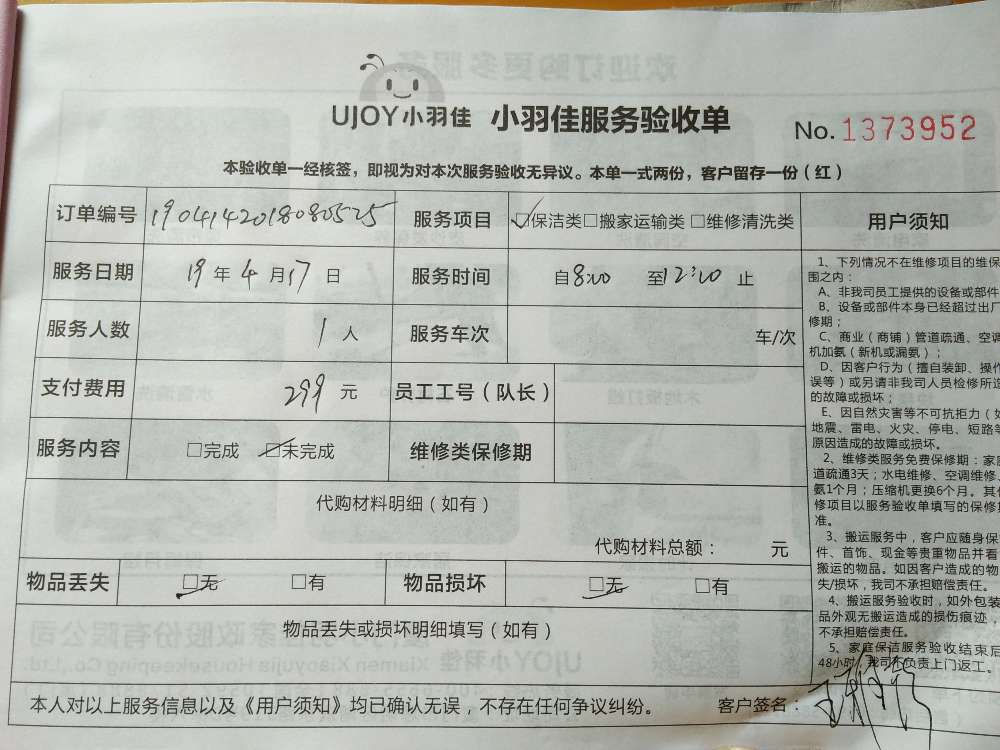 UJOY小羽佳 小羽佳服务验收单 No. 1373952
本验收单一经核签，即视为对本次服务验收无异议。本单一式两份，客户留存一份（红）
订单编号 190414201808052525 服务项目 □保洁类□搬家运输类□维修清洗类
服务日期 19年4月17日 服务时间 自8:00 至12:00 止
服务人数 1人 服务车次 车/次
支付费用 299元 员工工号（队长）
服务内容 □完成 □未完成 维修类保修期
代购材料明细（如有）
代购材料总额： 元
物品丢失 □无 □有 物品损坏 □无 □有
物品丢失或损坏明细填写（如有）
本人对以上服务信息以及《用户须知》均已确认无误，不存在任何争议纠纷。 客户签名：
用户须知
1、下列情况不在维修项目的维保
围之内：
A、非我司员工提供的设备或部件
B、设备或部件本身已经超过出厂
修期；
C、商业（商铺）管道疏通、空调
机加氨（新机或漏氨）；
D、因客户行为（擅自装卸、操作
误等）或另请非我司人员检修所造
的故障或损坏；
E、因自然灾害等不可抗拒力（如
地震、雷电、火灾、停电、短路等
原因造成的故障或损坏。
2、维修类服务免费保修期：家庭
道疏通3天；水电维修、空调维修、
氨1个月；压缩机更换6个月。其他
修项目以服务验收单填写的保修期
准。
3、搬运服务中，客户应随身保
件、首饰、现金等贵重物品并看
搬运的物品。如因客户造成的物
失/损坏，我司不承担赔偿责任。
4、搬运服务验收时，如外包装
品外观无搬运造成的损伤痕迹，
不承担赔偿责任。
5、家庭保洁服务验收结束后
48小时，我司不负责上门返工。